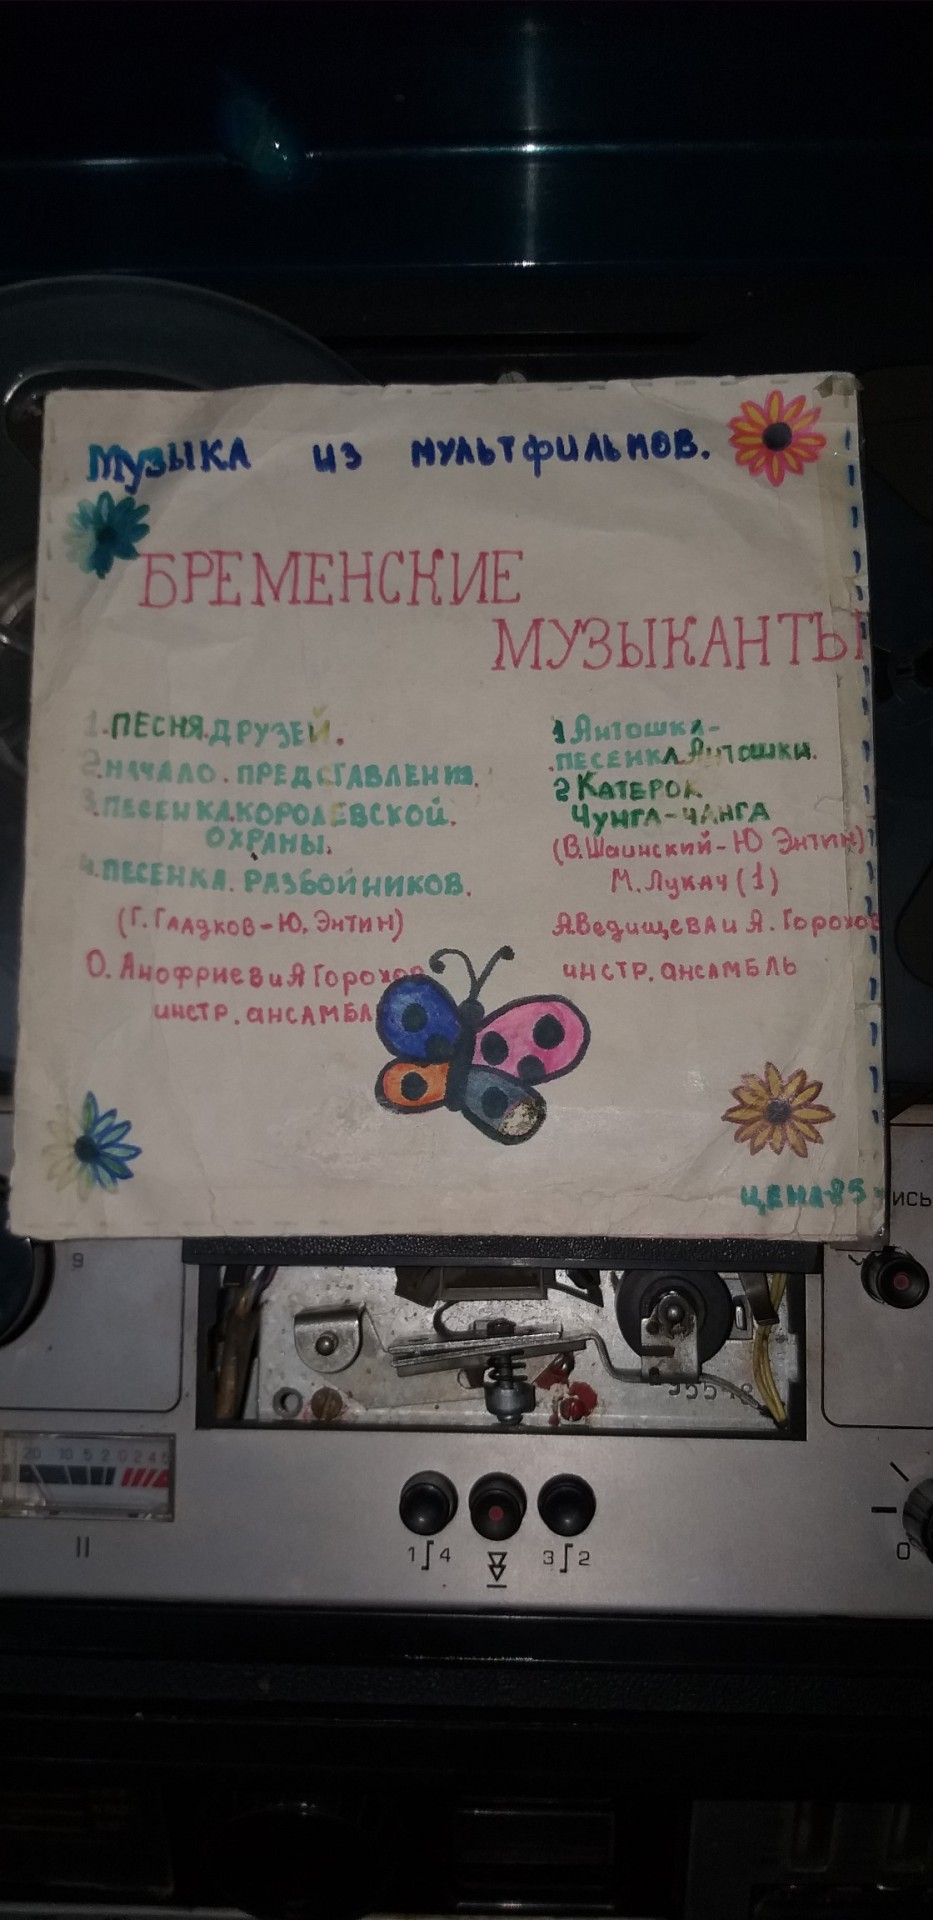 Музыка из мультфильмов.
БРЕМЕНСКИЕ
МУЗЫКАНТЫ
1.ПЕСНЯ.ДРУЗЕЙ.
2.НАЧАЛО.ПРЕДСТАВЛЕНИЯ.
3.ПЕСЕНКА.КОРОЛЕВСКОЙ.
ОХРАНЫ.
4.ПЕСЕНКА.РАЗБОЙНИКОВ.
(Г.Гладков-Ю.Энтин)
О. Анофриев и А Горохов
инстр.ансамбль
1 Антошка-
.песенка Антошки.
2 Катерок
Чунга-чанга
(В.Шаинский-Ю Энтин)
М.Лукач(1)
А.Ведищева и А. Горохов
инстр.ансамбль
ЦЕНА-85
ИСЬ
9
20 10 5 2 0 2 4 5
II
1 4
3 2
0